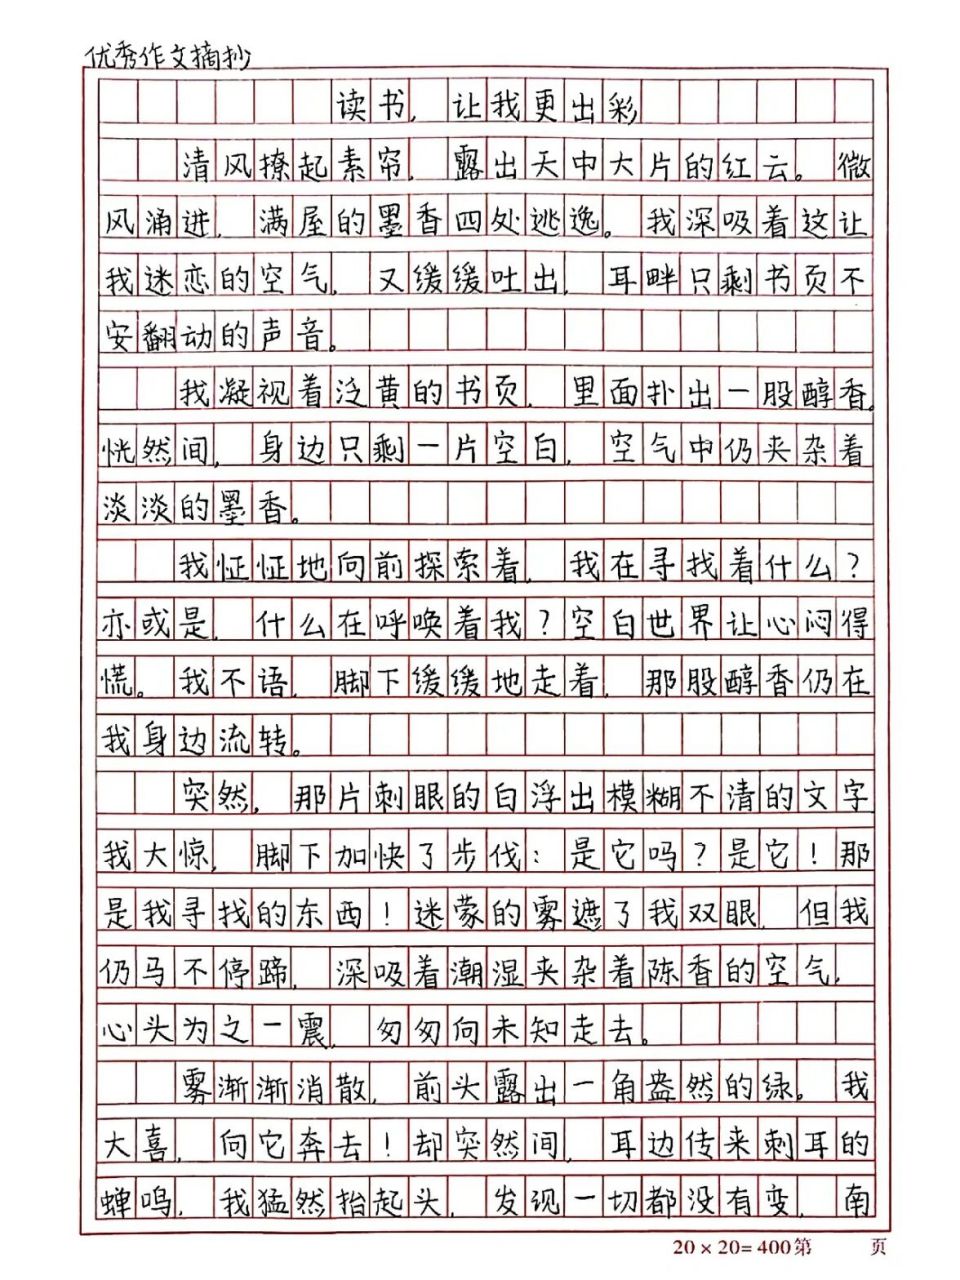 优秀作文摘抄
读书，让我更出彩
清风撩起素帘，露出天中大片的红云。微
风涌进，满屋的墨香四处逃逸。我深吸着这让
我迷恋的空气，又缓缓吐出，耳畔只剩书页不
安翻动的声音。
我凝视着泛黄的书页，里面扑出一股醇香。
恍然间，身边只剩一片空白，空气中仍夹杂着
淡淡的墨香。
我怔怔地向前探索着，我在寻找着什么？
亦或是，什么在呼唤着我？空白世界让心闷得
慌。我不语，脚下缓缓地走着，那股醇香仍在
我身边流转。
突然，那片刺眼的白浮出模糊不清的文字
我大惊，脚下加快了步伐：是它吗？是它！那
是我寻找的东西！迷蒙的雾遮了我双眼，但我
仍马不停蹄，深吸着潮湿夹杂着陈香的空气，
心头为之一震，匆匆向未知走去。
雾渐渐消散，前头露出一角盎然的绿。我
大喜，向它奔去！却突然间，耳边传来刺耳的
蝉鸣，我猛然抬起头，发现一切都没有变，南
20×20=400第 页